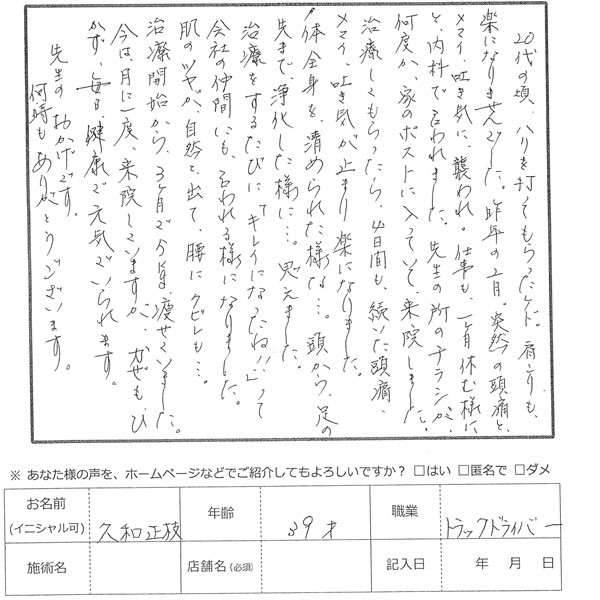 20代の頃、ハリを打ってもらったけど、肩こりも、
楽になりませんでした。昨年の2月。突然の頭痛と、
メマイ、吐き気に、襲われ。仕事も、一ヶ月休む様に
と、内科で言われました。先生の所のチラシが、
何度か、家のポストに入っていて、来院しました。
治療してもらったら、4日間も、続いた頭痛、
メマイ、吐き気が止まり楽になりました。
体全身を、清められた様な…。頭から、足の
先まで、浄化した様に…。思えました。
治療をするたびに「キレイになったね!!」って
会社の仲間にも、言われる様になりました。
肌のツヤが、自然と出て、腰にクビレも…。
治療開始から、3ヶ月で5kg、痩せていました。
今は、月に一度、来院していますが、かぜも、ひ
かず、毎日健康で元気でいられます。
先生のおかげです。
何時もありがとうございます。
※ あなた様の声を、ホームページなどでご紹介してもよろしいですか？ □はい □匿名で □ダメ
お名前
(イニシャル可)
久和正枝
年齢
39才
職業
トラックドライバー
施術名
店舗名(必須)
記入日
年 月 日